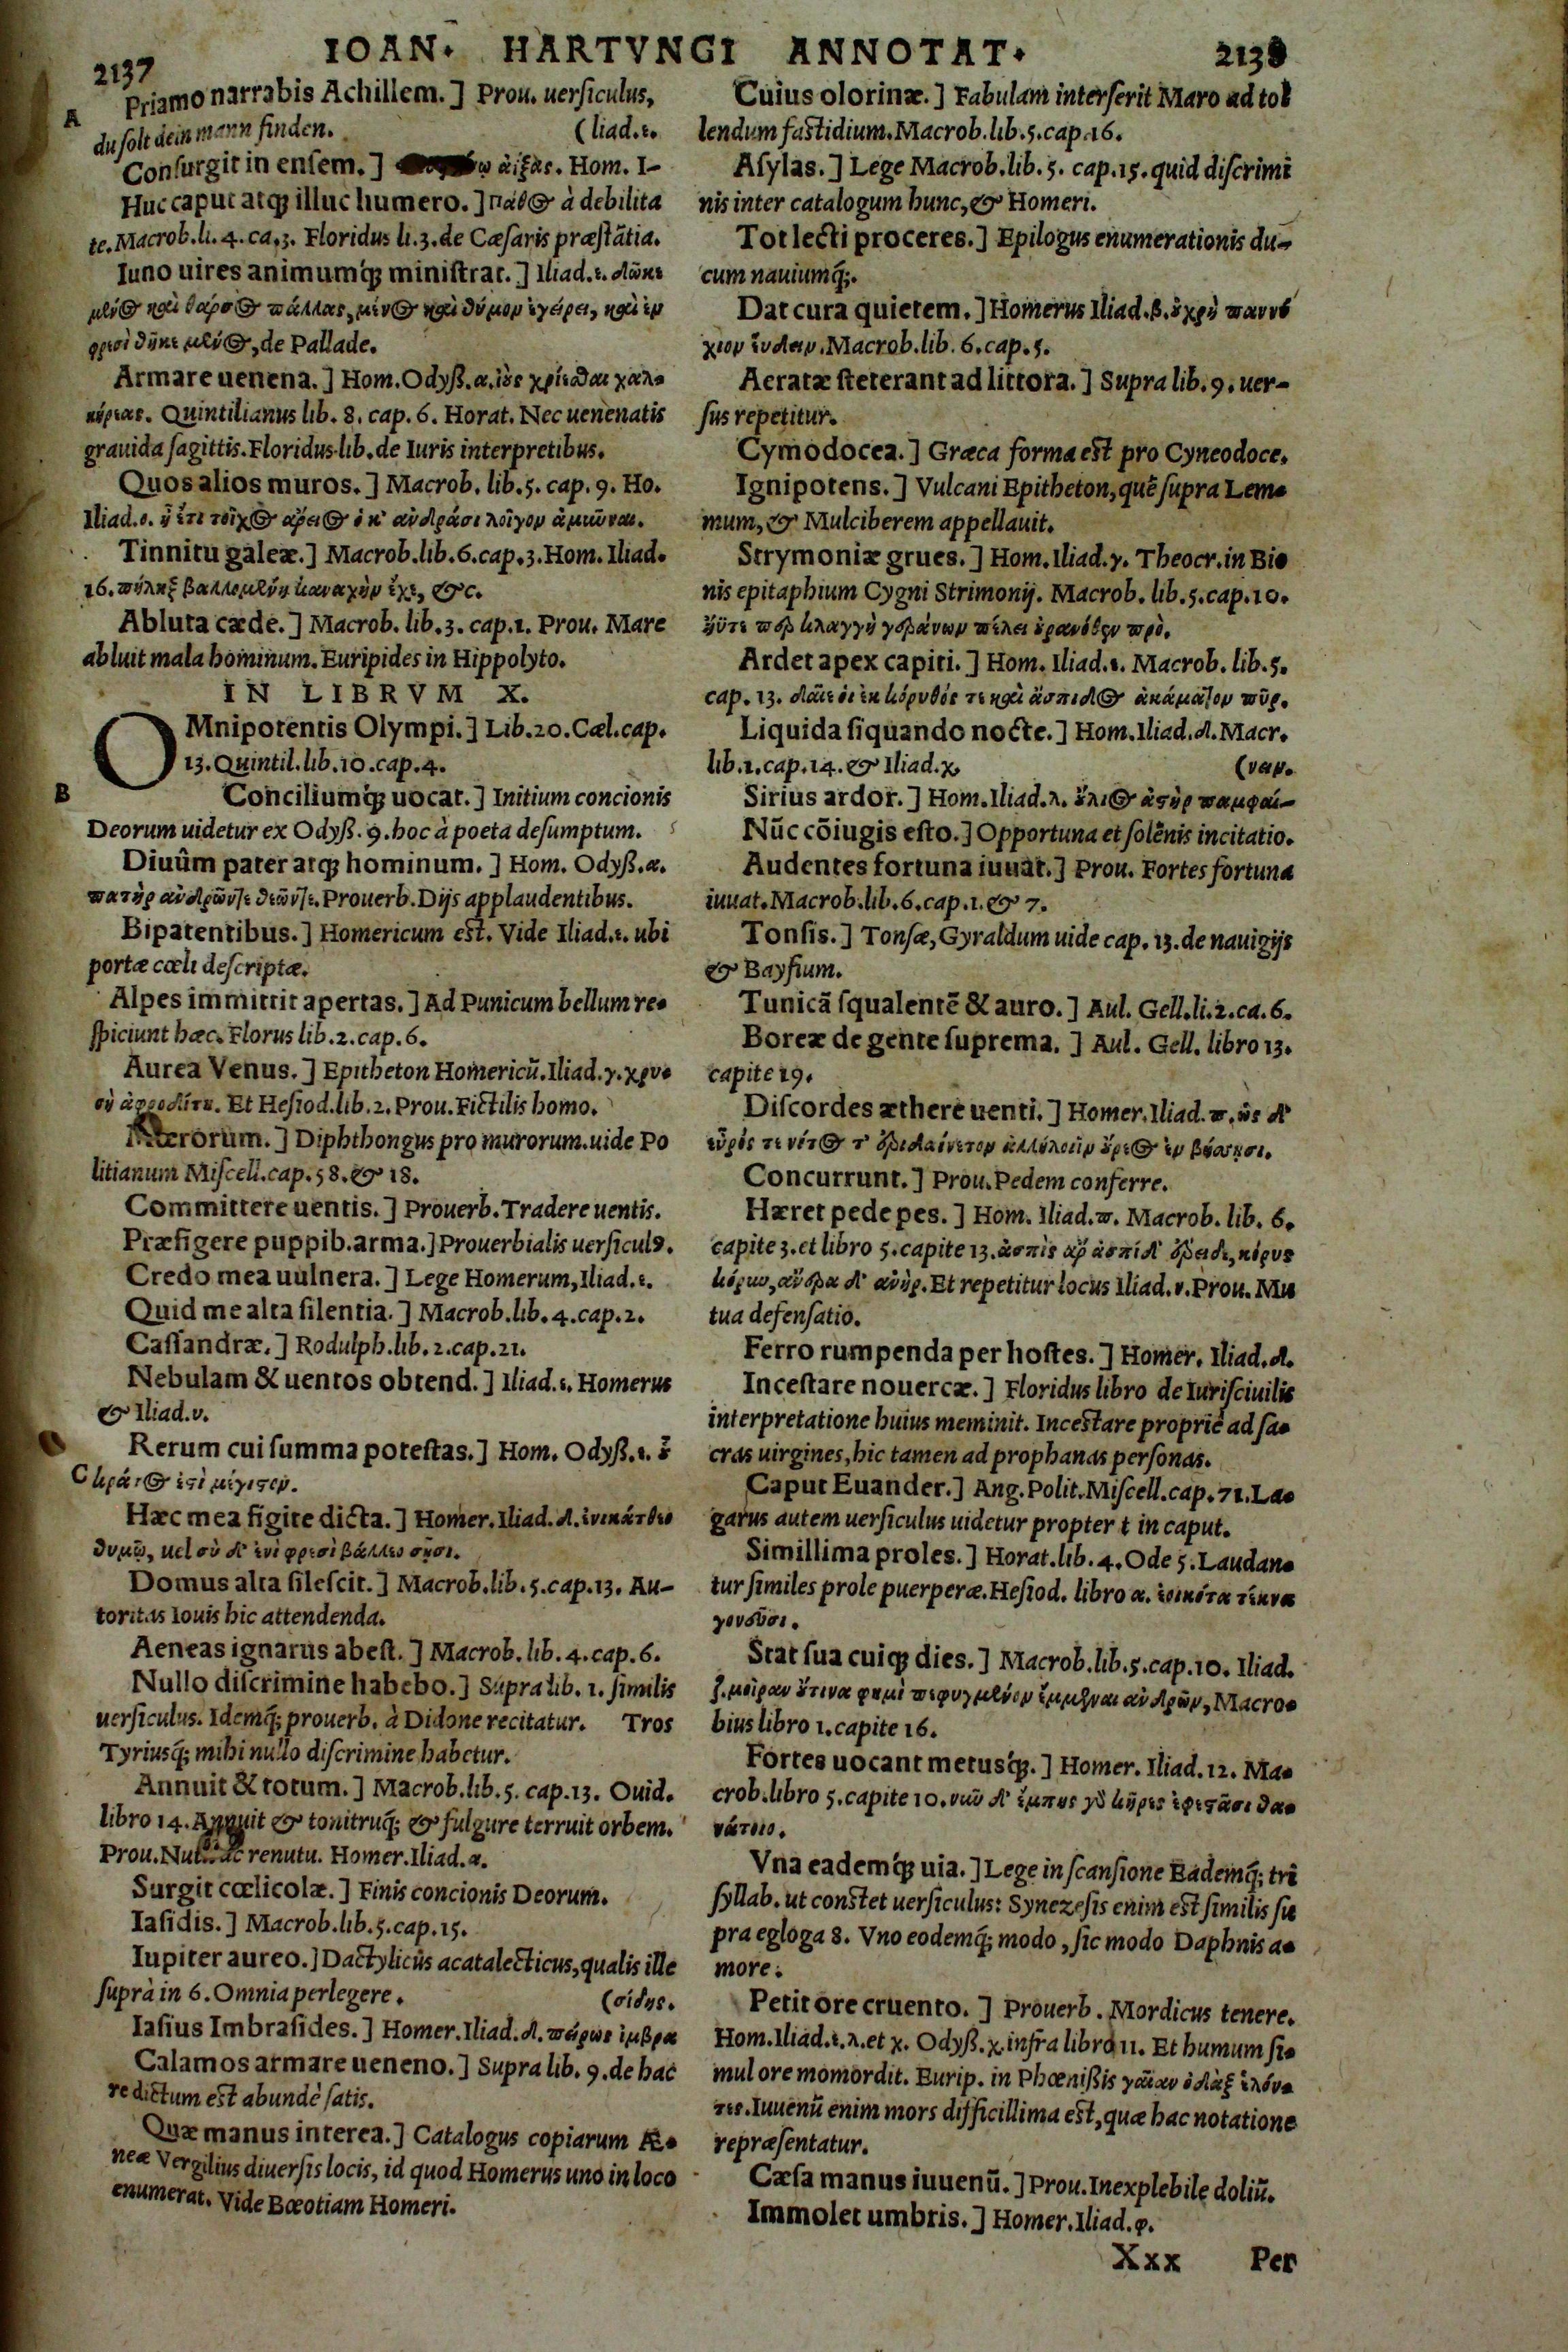 IOAN. HARTVNGI ANNOTAT.
2137
2138
A
Priamo narrabis Achillem.] Prou. uersiculus,
du solt dein mann finden. (liad.ε.
Consurgit in ensem.] ἀίξας. Hom. I-
Huc caput atq; illuc humero.] πάθος à debilita
te. Macrob. li. 4. ca. 3. Floridus li. 3. de Cæsaris præstātia.
Iuno uires animumq́; ministrat.] Iliad.ε. δῶκε
μένος καὶ θάρσος πάλλας, μένος καὶ θύμον ἐγείρει, καὶ ἐν
φρεσὶ θῆκε μένος, de Pallade.
Armare uenena.] Hom. Odyß.α. ἰοὺς χρίεσθαι χαλ-
κήρεας. Quintilianus lib. 8. cap. 6. Horat. Nec uenenatis
grauida sagittis. Floridus lib. de Iuris interpretibus.
Quos alios muros.] Macrob. lib. 5. cap. 9. Ho.
Iliad.ο. ἢ ἔτι τοῖχος ἄρειος ὁ κ' ἀνδράσι λοῖγον ἀμιῶναι.
Tinnitu galeæ.] Macrob. lib. 6. cap. 3. Hom. Iliad.
16. πήληξ βαλλομένη καναχὴν ἔχε, &c.
Abluta cæde.] Macrob. lib. 3. cap. 1. Prou. Mare
abluit mala hominum. Euripides in Hippolyto.
IN LIBRVM X.
OMnipotentis Olympi.] Lib. 20. Cæl. cap.
13. Quintil. lib. 10. cap. 4.
B
Conciliumq́; uocat.] Initium concionis
Deorum uidetur ex Odyß. 9. hoc à poeta desumptum.
Diuûm pater atq; hominum.] Hom. Odyß.α.
πατὴρ ἀνδρῶντε θεῶντε. Prouerb. Dijs applaudentibus.
Bipatentibus.] Homericum est. Vide Iliad.ε. ubi
portæ cœli descriptæ.
Alpes immittit apertas.] Ad Punicum bellum re-
spiciunt hæc. Florus lib. 2. cap. 6.
Aurea Venus.] Epitheton Homericū. Iliad.γ. χρυ-
σῆ ἀφροδίτη. Et Hesiod. lib. 2. Prou. Fictilis homo.
Moerorum.] Diphthongus pro murorum. uide Po
litianum Miscell. cap. 58. & 18.
Committere uentis.] Prouerb. Tradere uentis.
Præfigere puppib. arma.] Prouerbialis uersiculꝰ.
Credo mea uulnera.] Lege Homerum, Iliad.ε.
Quid me alta silentia.] Macrob. lib. 4. cap. 2.
Cassandræ.] Rodulph. lib. 2. cap. 21.
Nebulam & uentos obtend.] Iliad.ε. Homerus
& Iliad.υ.
Rerum cui summa potestas.] Hom. Odyß.ε. οὗ
C κράτος ἐστὶ μέγιστον.
Hæc mea figite dicta.] Homer. Iliad.δ. ἐνικάτθεο
θυμῷ, uel σὺ δ' ἐνὶ φρεσὶ βάλλεο σῇσι.
Domus alta silescit.] Macrob. lib. 5. cap. 13. Au-
toritas Iouis hic attendenda.
Aeneas ignarus abest.] Macrob. lib. 4. cap. 6.
Nullo discrimine habebo.] Supra lib. 1. similis
uersiculus. Idemq́; prouerb. à Didone recitatur. Tros
Tyriusq́; mihi nullo discrimine habetur.
Annuit & totum.] Macrob. lib. 5. cap. 13. Ouid.
libro 14. Annuit & tonitruq́; & fulgure terruit orbem.
Prou. Nutu ac renutu. Homer. Iliad.α.
Surgit cœlicolæ.] Finis concionis Deorum.
Iasidis.] Macrob. lib. 5. cap. 15.
Iupiter aureo.] Dactylicùs acatalecticus, qualis ille
suprà in 6. Omnia perlegere. (σίδης.
Iasius Imbrasides.] Homer. Iliad.δ. πείρως ἰμβρα
Calamos armare ueneno.] Supra lib. 9. de hac
re dictum est abundè satis.
Quæ manus interea.] Catalogus copiarum Æ-
neæ Vergilius diuersis locis, id quod Homerus uno in loco
enumerat. Vide Bœotiam Homeri.
Cuius olorinæ.] Fabulam interserit Maro ad tol
lendum fastidium. Macrob. lib. 5. cap. 16.
Asylas.] Lege Macrob. lib. 5. cap. 15. quid discrimi
nis inter catalogum hunc, & Homeri.
Tot lecti proceres.] Epilogus enumerationis du-
cum nauiumq́;.
Dat cura quietem.] Homerus Iliad.β. οὐ χρὴ παννύ
χιον εὕδειν. Macrob. lib. 6. cap. 5.
Aeratæ steterant ad littora.] Supra lib. 9. uer-
sus repetitur.
Cymodocea.] Græca forma est pro Cyneodoce.
Ignipotens.] Vulcani Epitheton, quē supra Lem-
mum, & Mulciberem appellauit.
Strymoniæ grues.] Hom. Iliad.γ. Theocr. in Bio
nis epitaphium Cygni Strimonij. Macrob. lib. 5. cap. 10.
ἠΰτε περ κλαγγὴ γεράνων πέλει οὐρανόθεν πρὸ.
Ardet apex capiti.] Hom. Iliad.ε. Macrob. lib. 5.
cap. 13. δαῖε οἱ ἐκ κόρυθός τε καὶ ἄσπιδος ἀκάματον πῦρ.
Liquida siquando nocte.] Hom. Iliad.δ. Macr.
lib. 1. cap. 14. & Iliad.χ. (νειν.
Sirius ardor.] Hom. Iliad.λ. οὔλιος ἀστὴρ παμφαί-
Nūc cōiugis esto.] Opportuna et solēnis incitatio.
Audentes fortuna iuuat.] Prou. Fortes fortuna
iuuat. Macrob. lib. 6. cap. 1. & 7.
Tonsis.] Tonsæ, Gyraldum uide cap. 13. de nauigijs
& Bayfium.
Tunicā squalentē & auro.] Aul. Gell. li. 2. ca. 6.
Boreæ de gente suprema.] Aul. Gell. libro 13.
capite 19.
Discordes æthere uenti.] Homer. Iliad.π. ὡς δ'
εὖρός τε νότος τ' ἐριδαίνετον ἀλλήλοιιν οὔρεος ἐν βήσσῃσι.
Concurrunt.] Prou. Pedem conferre.
Hæret pede pes.] Hom. Iliad.π. Macrob. lib. 6.
capite 3. et libro 5. capite 13. ἀσπὶς ἄρ ἀσπίδ' ἔρειδε, κόρυς
κόρυν, ἄνερα δ' ἀνὴρ. Et repetitur locus Iliad.ν. Prou. Mu
tua defensatio.
Ferro rumpenda per hostes.] Homer. Iliad.δ.
Incestare nouercæ.] Floridus libro de Iuris ciuilis
interpretatione huius meminit. Incestare propriè ad sa-
cras uirgines, hic tamen ad prophanas personas.
Caput Euander.] Ang. Polit. Miscell. cap. 71. La-
garus autem uersiculus uidetur propter t in caput.
Simillima proles.] Horat. lib. 4. Ode 5. Laudan-
tur similes prole puerperæ. Hesiod. libro α. ἐοικότα τέκνα
γονεῦσι.
Stat sua cuiq; dies.] Macrob. lib. 5. cap. 10. Iliad.
ζ. μοῖραν οὔτινα φημὶ πεφυγμένον ἔμμεναι ἀνδρῶν, Macro-
bius libro 1. capite 16.
Fortes uocant metusq́;.] Homer. Iliad. 12. Ma-
crob. libro 5. capite 10. νῦν δ' ἔμπης γὰρ κῆρες ἐφεστᾶσι θα-
νάτοιο.
Vna eademq́; uia.] Lege in scansione Eademq́; tri
syllab. ut constet uersiculus: Synezesis enim est similis su
pra egloga 8. Vno eodemq́; modo, sic modo Daphnis a-
more.
Petit ore cruento.] Prouerb. Mordicus tenere.
Hom. Iliad.ε.λ. et χ. Odyß.χ. infra libro 11. Et humum si-
mul ore momordit. Eurip. in Phœnißis γαῖαν ὀδὰξ ἑλόν-
τες. Iuuenū enim mors difficillima est, quæ hac notatione
repræsentatur.
Cæsa manus iuuenū.] Prou. Inexplebile doliū.
Immolet umbris.] Homer. Iliad.φ.
Xxx Per